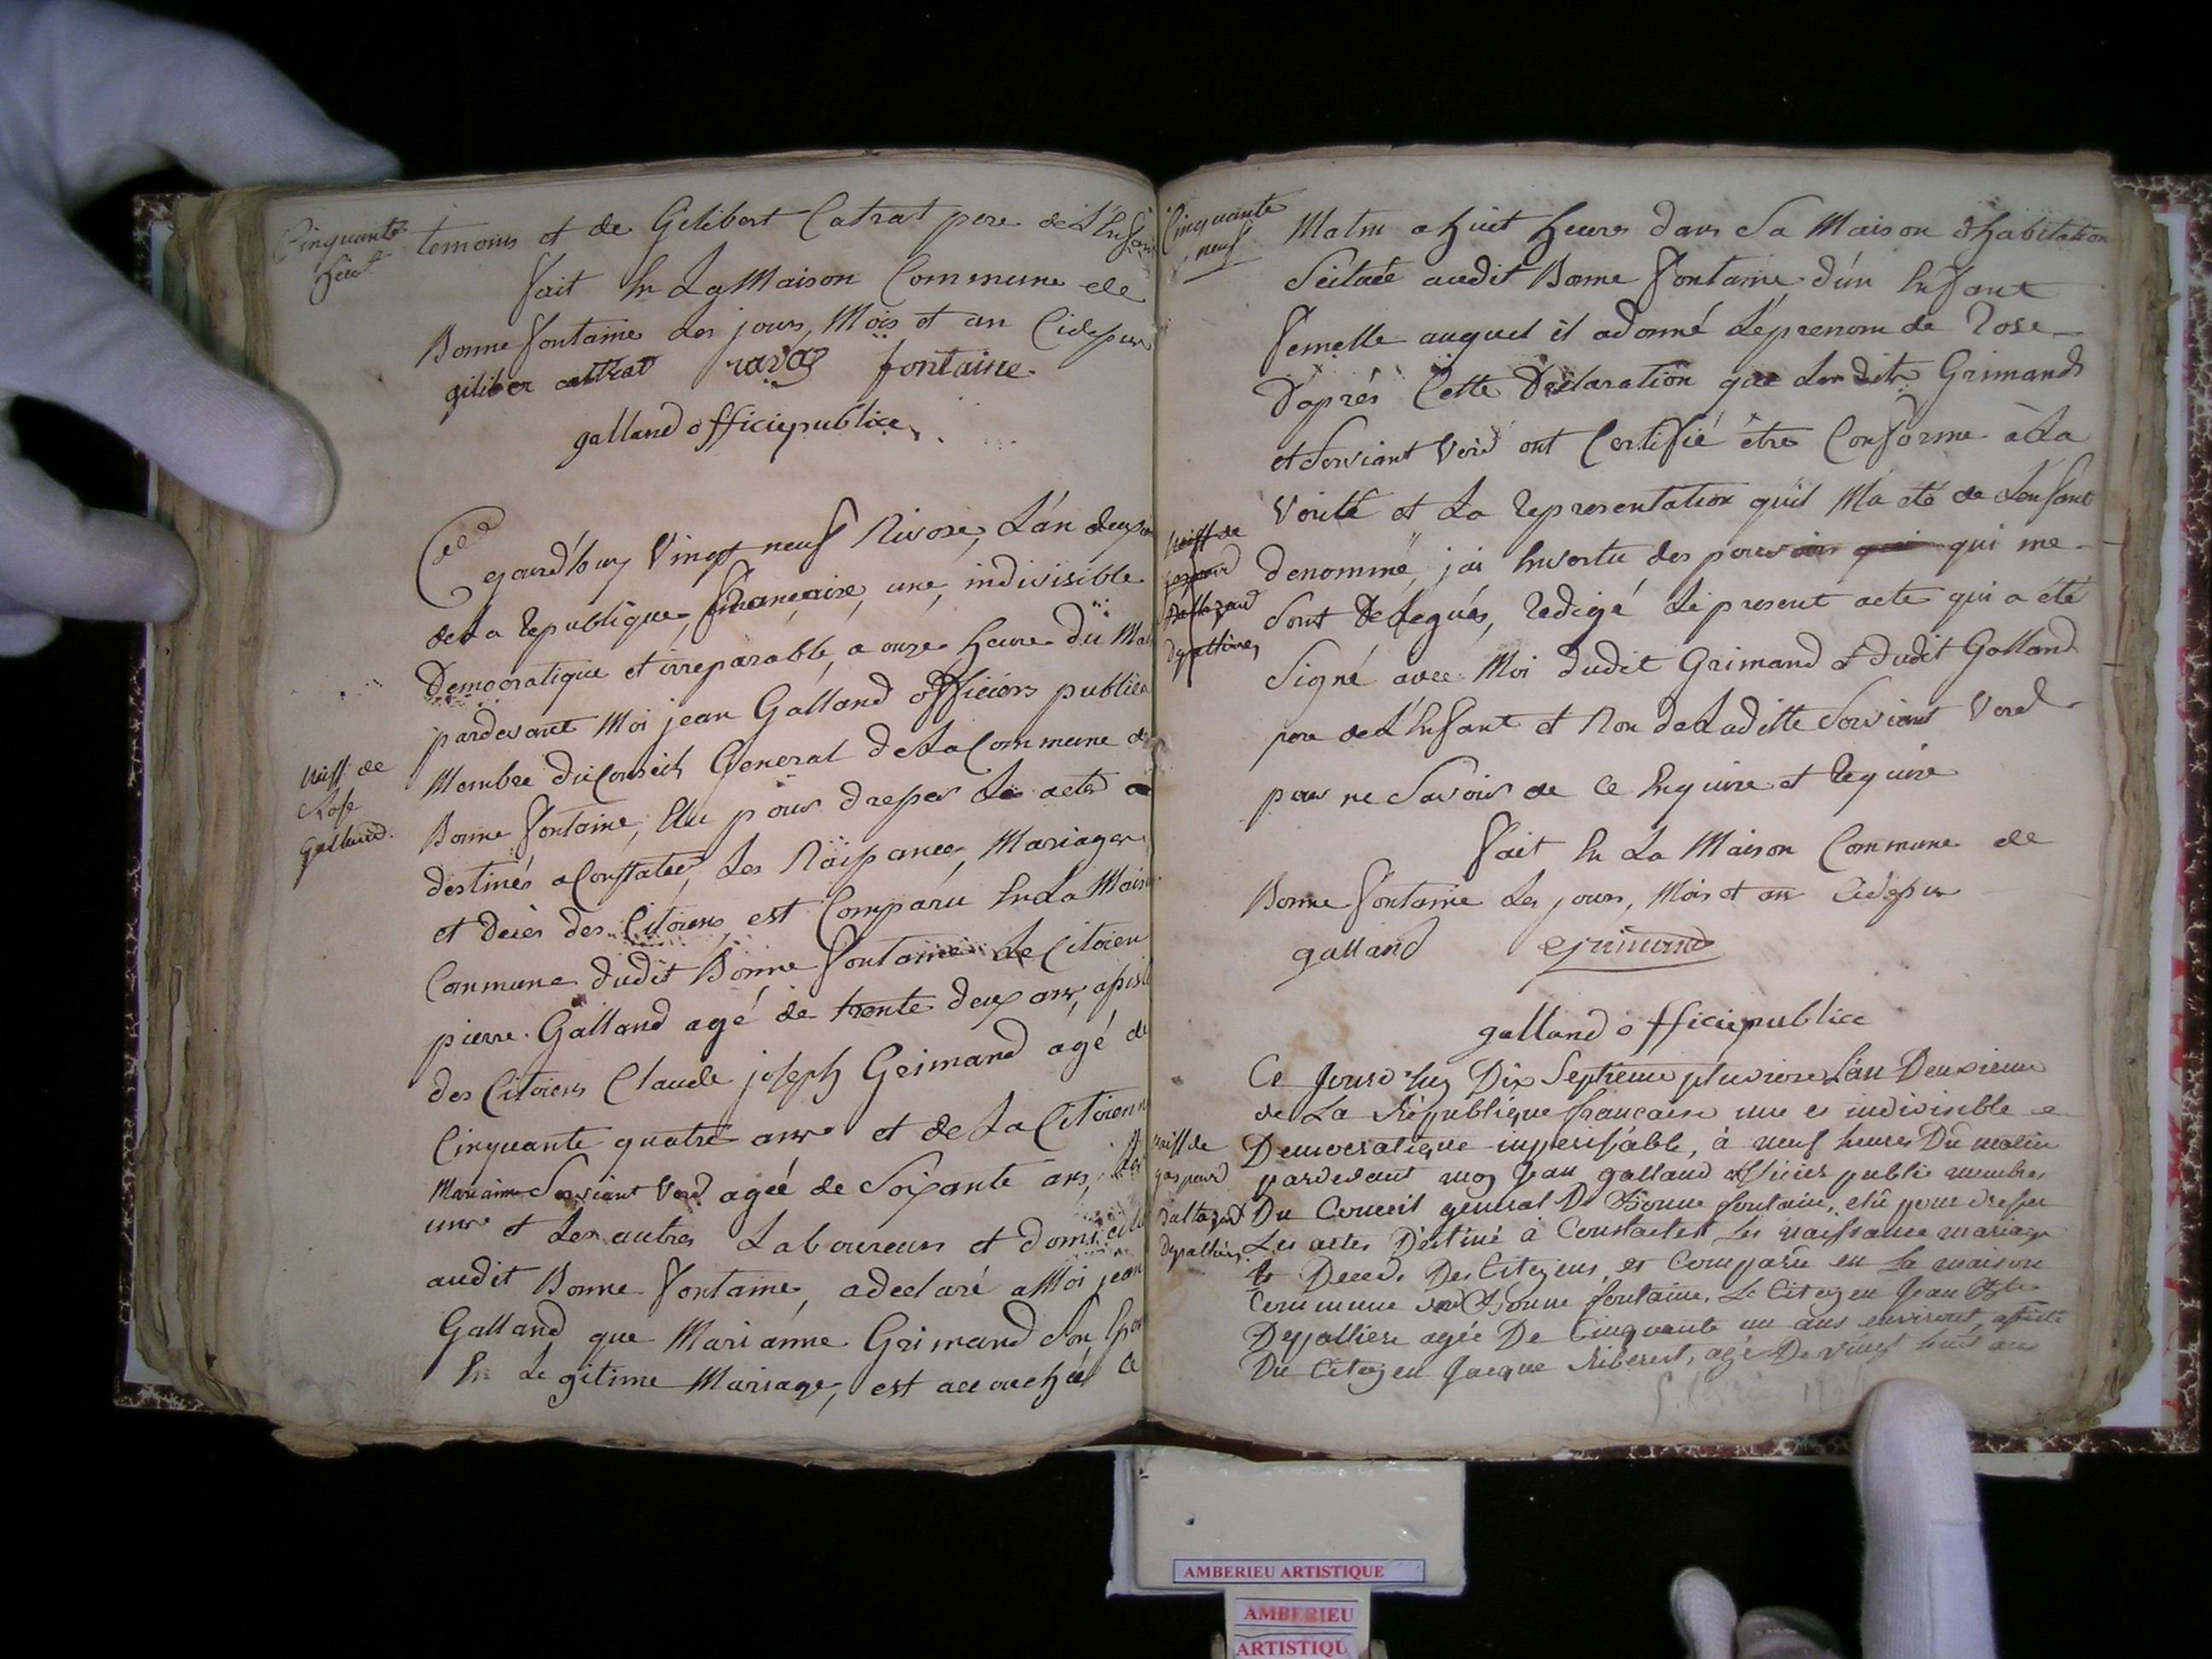 Cinquante
huit
temoins et de Gilibert Catrat pere de L'Enfant
fait En La Maison Commune de
Bonne fontaine Les jours, Mois et an Cidessus
giliber cattrat ravas fontaine
galland officiepublice
Cejourd'huy Vingt neuf Nivose, L'an deux
de La republique, francaise, une, indivisible
Democratique et irreparable, a onze heure du Ma
pardevant Moi jean Galland officiers public
Membre du Conseil General de La Commune de
Bonne fontaine, Elu pour dresser Les actes
destinés a Constater, Les Naissances, Mariages
et decès des Citoiens, est Comparu En La Maison
Commune dudit Bonne fontaine Le Citoien
pierre Galland agé de trente deux ans, assisté
des Citoiens Claude joseph Grimand agé de
Cinquante quatre ans et de La Citoienne
Marianne Serviant Verd agée de Soixante ans,
et Les autres Laboureurs et domicilié
audit Bonne fontaine, a declaré a Moi jean
Galland que Marianne Grimand Son Epouse
En Legitime Mariage, est accouchée Ce
Naiss de
Rose
Galland.
Cinquante
neuf
Matin a huit heures dans Sa Maison d'habitation
Scituée audit Bonne fontaine d'un Enfant
femelle auquel il a donné Le prenom de Rose
D'aprés Cette Declaration que Lesdits Grimand
et Serviant Verd ont Certifié être Conforme à La
Verité et La representation qu'il M'a été de L'enfant
denommé, j'ai En vertu des pouvoirs qui me
Sont Delegués, Redigé Le present acte qui a été
Signé avec Moi dudit Grimand et dudit Galland
pere de L'Enfant et Non de Laditte Serviant Verd
pour ne Savoir de Ce Enquise et Requise
fait En La Maison Commune de
Bonne fontaine Les jours, Mois et an Cidessus
galland grimand
galland officiepublice
Naiss de
gaspard
Baltazard
Depalliere
Ce Jourd'huy Dix Septieme pluviose L'an Deuxieme
de La République francaise une et indivisible
Democratique imperissable, à neuf heures Du matin
pardevant moy Jean galland officier public membres
Du Conseil general De Bonne fontaine, elû pour dresser
Les actes Destiné à Constater Les naissance mariage
et Deced. Des Citoyens, est Comparû en La maison
Commune de Bonne fontaine. Le Citoyen Jean Bte
Depalliere agée De Cinquante un ans environt, assisté
Du Citoyen Jacque Riberest, agé De vingt huit ans
naiss de
gaspard
baltazard
Depalliere
AMBERIEU ARTISTIQUE
AMBERIEU
ARTISTIQU